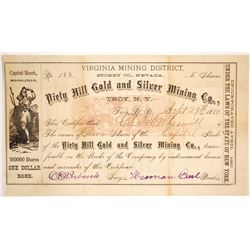 VIRGINIA MINING DISTRICT,
STOREY CO., NEVADA.
Capital Stock,
No. 183
5 Shares
Piety Hill Gold and Silver Mining Co.,
TROY, N.Y.
Troy, N.Y. Sept 29th 1880
This Certifies that
is the owner of Five Shares of the Capital Stock
of the Piety Hill Gold and Silver Mining Co.,
transferable on the Books of the Company by endorsement hereon
and surrender of this Certificate.
100000 Shares
ONE DOLLAR
EACH.
Sec'y.
Pres't.
UNDER THE LAWS OF THE STATE OF NEW YORK.